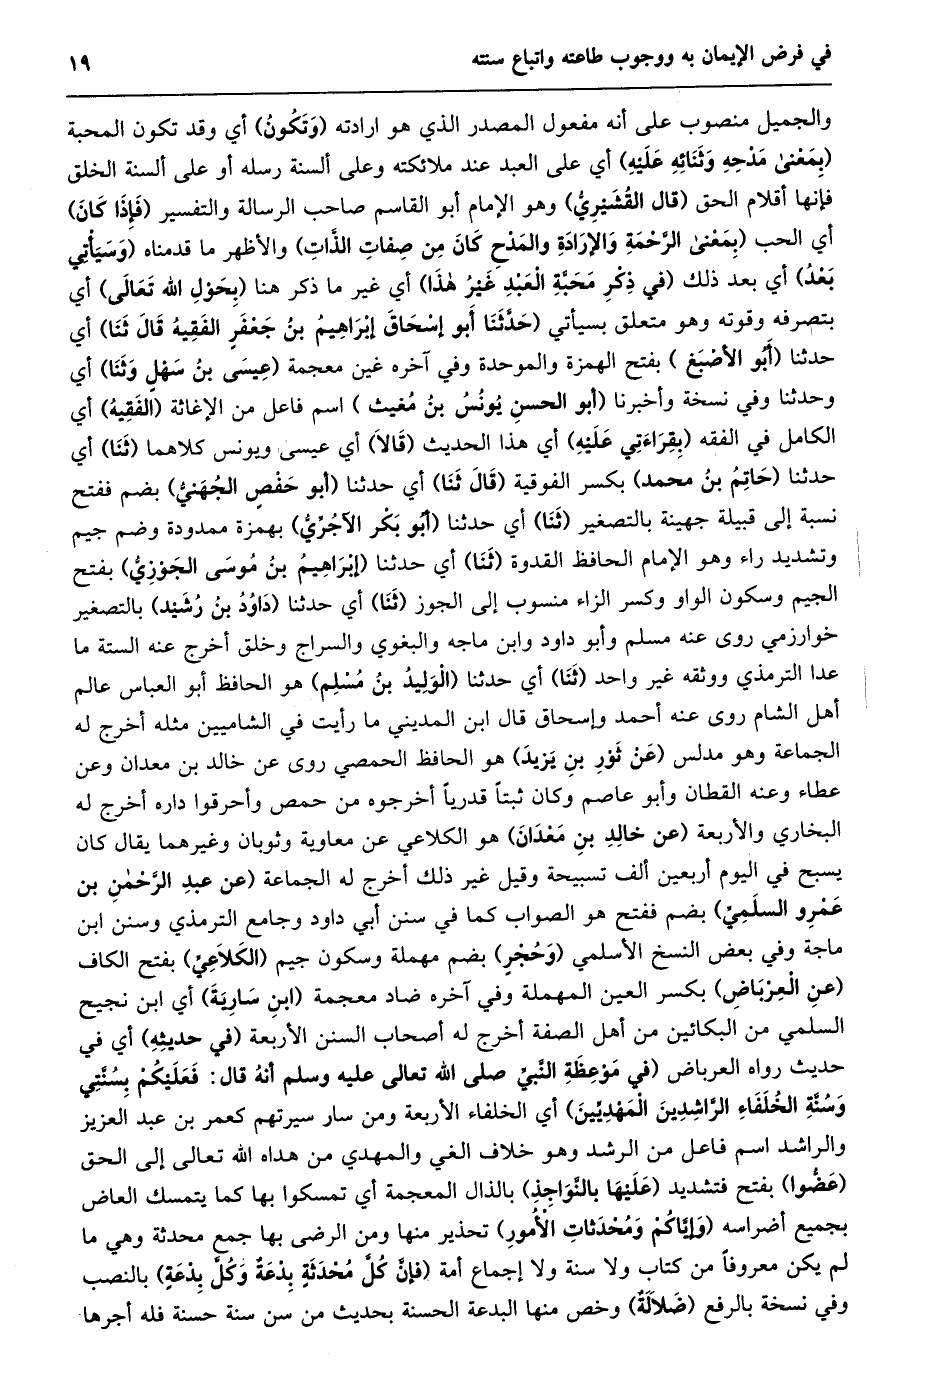 في فرض الإيمان به ووجوب طاعته واتباع سنته ١٩
والجميل منصوب على أنه مفعول المصدر الذي هو ارادته (وَتَكُونُ) أي وقد تكون المحبة
(بِمَعْنىٰ مَدْحِهِ وَثَنَائِهِ عَلَيْهِ) أي على العبد عند ملائكته وعلى ألسنة رسله أو على ألسنة الخلق
فإنها أقلام الحق (قال القُشَيْرِيُّ) وهو الإمام أبو القاسم صاحب الرسالة والتفسير (فَإِذَا كَانَ)
أي الحب (بِمَعْنىٰ الرَّحْمَةِ وَالإرَادَةِ والمَدْحِ كَانَ مِن صِفاتِ الذَّاتِ) والأظهر ما قدمناه (وَسَيَأْتِي
بَعْدُ) أي بعد ذلك (في ذِكْرِ مَحَبَّةِ الْعَبْدِ غَيْرُ هٰذَا) أي غير ما ذكر هنا (بِحَوْلِ الله تَعَالَى) أي
بتصرفه وقوته وهو متعلق بسيأتي (حَدَّثَنَا أَبو إسْحَاقَ إبْرَاهِيمُ بنُ جَعْفَرٍ الفَقِيهُ قَالَ ثَنَا) أي
حدثنا (أَبُو الأَصْبَغِ ) بفتح الهمزة والموحدة وفي آخره غين معجمة (عِيسَى بنُ سَهْلٍ وَثَنَا) أي
وحدثنا وفي نسخة وأخبرنا (أبو الحسنِ يُونُسُ بنُ مُغيث ) اسم فاعل من الإغاثة (الفَقِيهُ) أي
الكامل في الفقه (بِقِرَاءَتِي عَلَيْهِ) أي هذا الحديث (قَالاَ) أي عيسى ويونس كلاهما (ثَنَا) أي
حدثنا (حَاتِمُ بنُ محمد) بكسر الفوقية (قَالَ ثَنَا) أي حدثنا (أبو حَفْصٍ الجُهَنيُّ) بضم ففتح
نسبة إلى قبيلة جهينة بالتصغير (ثَنَا) أي حدثنا (أَبُو بَكْر الآجُرِّيُّ) بهمزة ممدودة وضم جيم
وتشديد راء وهو الإمام الحافظ القدوة (ثَنَا) أي حدثنا (إبْرَاهِيمُ بنُ مُوسَى الجَوْزِيُّ) بفتح
الجيم وسكون الواو وكسر الزاء منسوب إلى الجوز (ثَنَا) أي حدثنا (دَاوُدُ بنُ رُشَيْد) بالتصغير
خوارزمي روى عنه مسلم وأبو داود وابن ماجه والبغوي والسراج وخلق أخرج عنه الستة ما
عدا الترمذي ووثقه غير واحد (ثَنَا) أي حدثنا (الْوَلِيدُ بنُ مُسْلِمٍ) هو الحافظ أبو العباس عالم
أهل الشام روى عنه أحمد وإسحاق قال ابن المديني ما رأيت في الشاميين مثله أخرج له
الجماعة وهو مدلس (عَنْ ثَوْرِ بنِ يَزِيدَ) هو الحافظ الحمصي روى عن خالد بن معدان وعن
عطاء وعنه القطان وأبو عاصم وكان ثبتاً قدرياً أخرجوه من حمص وأحرقوا داره أخرج له
البخاري والأربعة (عن خالِدِ بنِ مَعْدَانَ) هو الكلاعي عن معاوية وثوبان وغيرهما يقال كان
يسبح في اليوم أربعين ألف تسبيحة وقيل غير ذلك أخرج له الجماعة (عن عبدِ الرَّحْمٰنِ بن
عَمْرِو السلَمِيِّ) بضم ففتح هو الصواب كما في سنن أبي داود وجامع الترمذي وسنن ابن
ماجة وفي بعض النسخ الأسلمي (وَحُجْرٍ) بضم مهملة وسكون جيم (الكَلاَعِيِّ) بفتح الكاف
(عنِ الْعِرْبَاضِ) بكسر العين المهملة وفي آخره ضاد معجمة (ابنِ سَارِيَةَ) أي ابن نجيح
السلمي من البكائين من أهل الصفة أخرج له أصحاب السنن الأربعة (في حديثِهِ) أي في
حديث رواه العرباض (في مَوْعِظَةِ النَّبيِّ صلى الله تعالى عليه وسلم أنهُ قال: فَعَلَيْكُمْ بِسُنَّتِي
وَسُنَّةِ الخُلَفَاءِ الرَّاشِدِينَ الْمَهْدِيِّينَ) أي الخلفاء الأربعة ومن سار سيرتهم كعمر بن عبد العزيز
والراشد اسم فاعل من الرشد وهو خلاف الغي والمهدي من هداه الله تعالى إلى الحق
(عَضُّوا) بفتح فتشديد (عَلَيْهَا بالنَّوَاجِذِ) بالذال المعجمة أي تمسكوا بها كما يتمسك العاض
بجميع أضراسه (وَإيَّاكُمْ وَمُحْدَثَاتِ الْأُمورِ) تحذير منها ومن الرضى بها جمع محدثة وهي ما
لم يكن معروفاً من كتاب ولا سنة ولا إجماع أمة (فإنَّ كُلَّ مُحْدَثَةٍ بِدْعَةٌ وَكُلَّ بِدْعَةٍ) بالنصب
وفي نسخة بالرفع (ضَلاَلَةٌ) وخص منها البدعة الحسنة بحديث من سن سنة حسنة فله أجرها